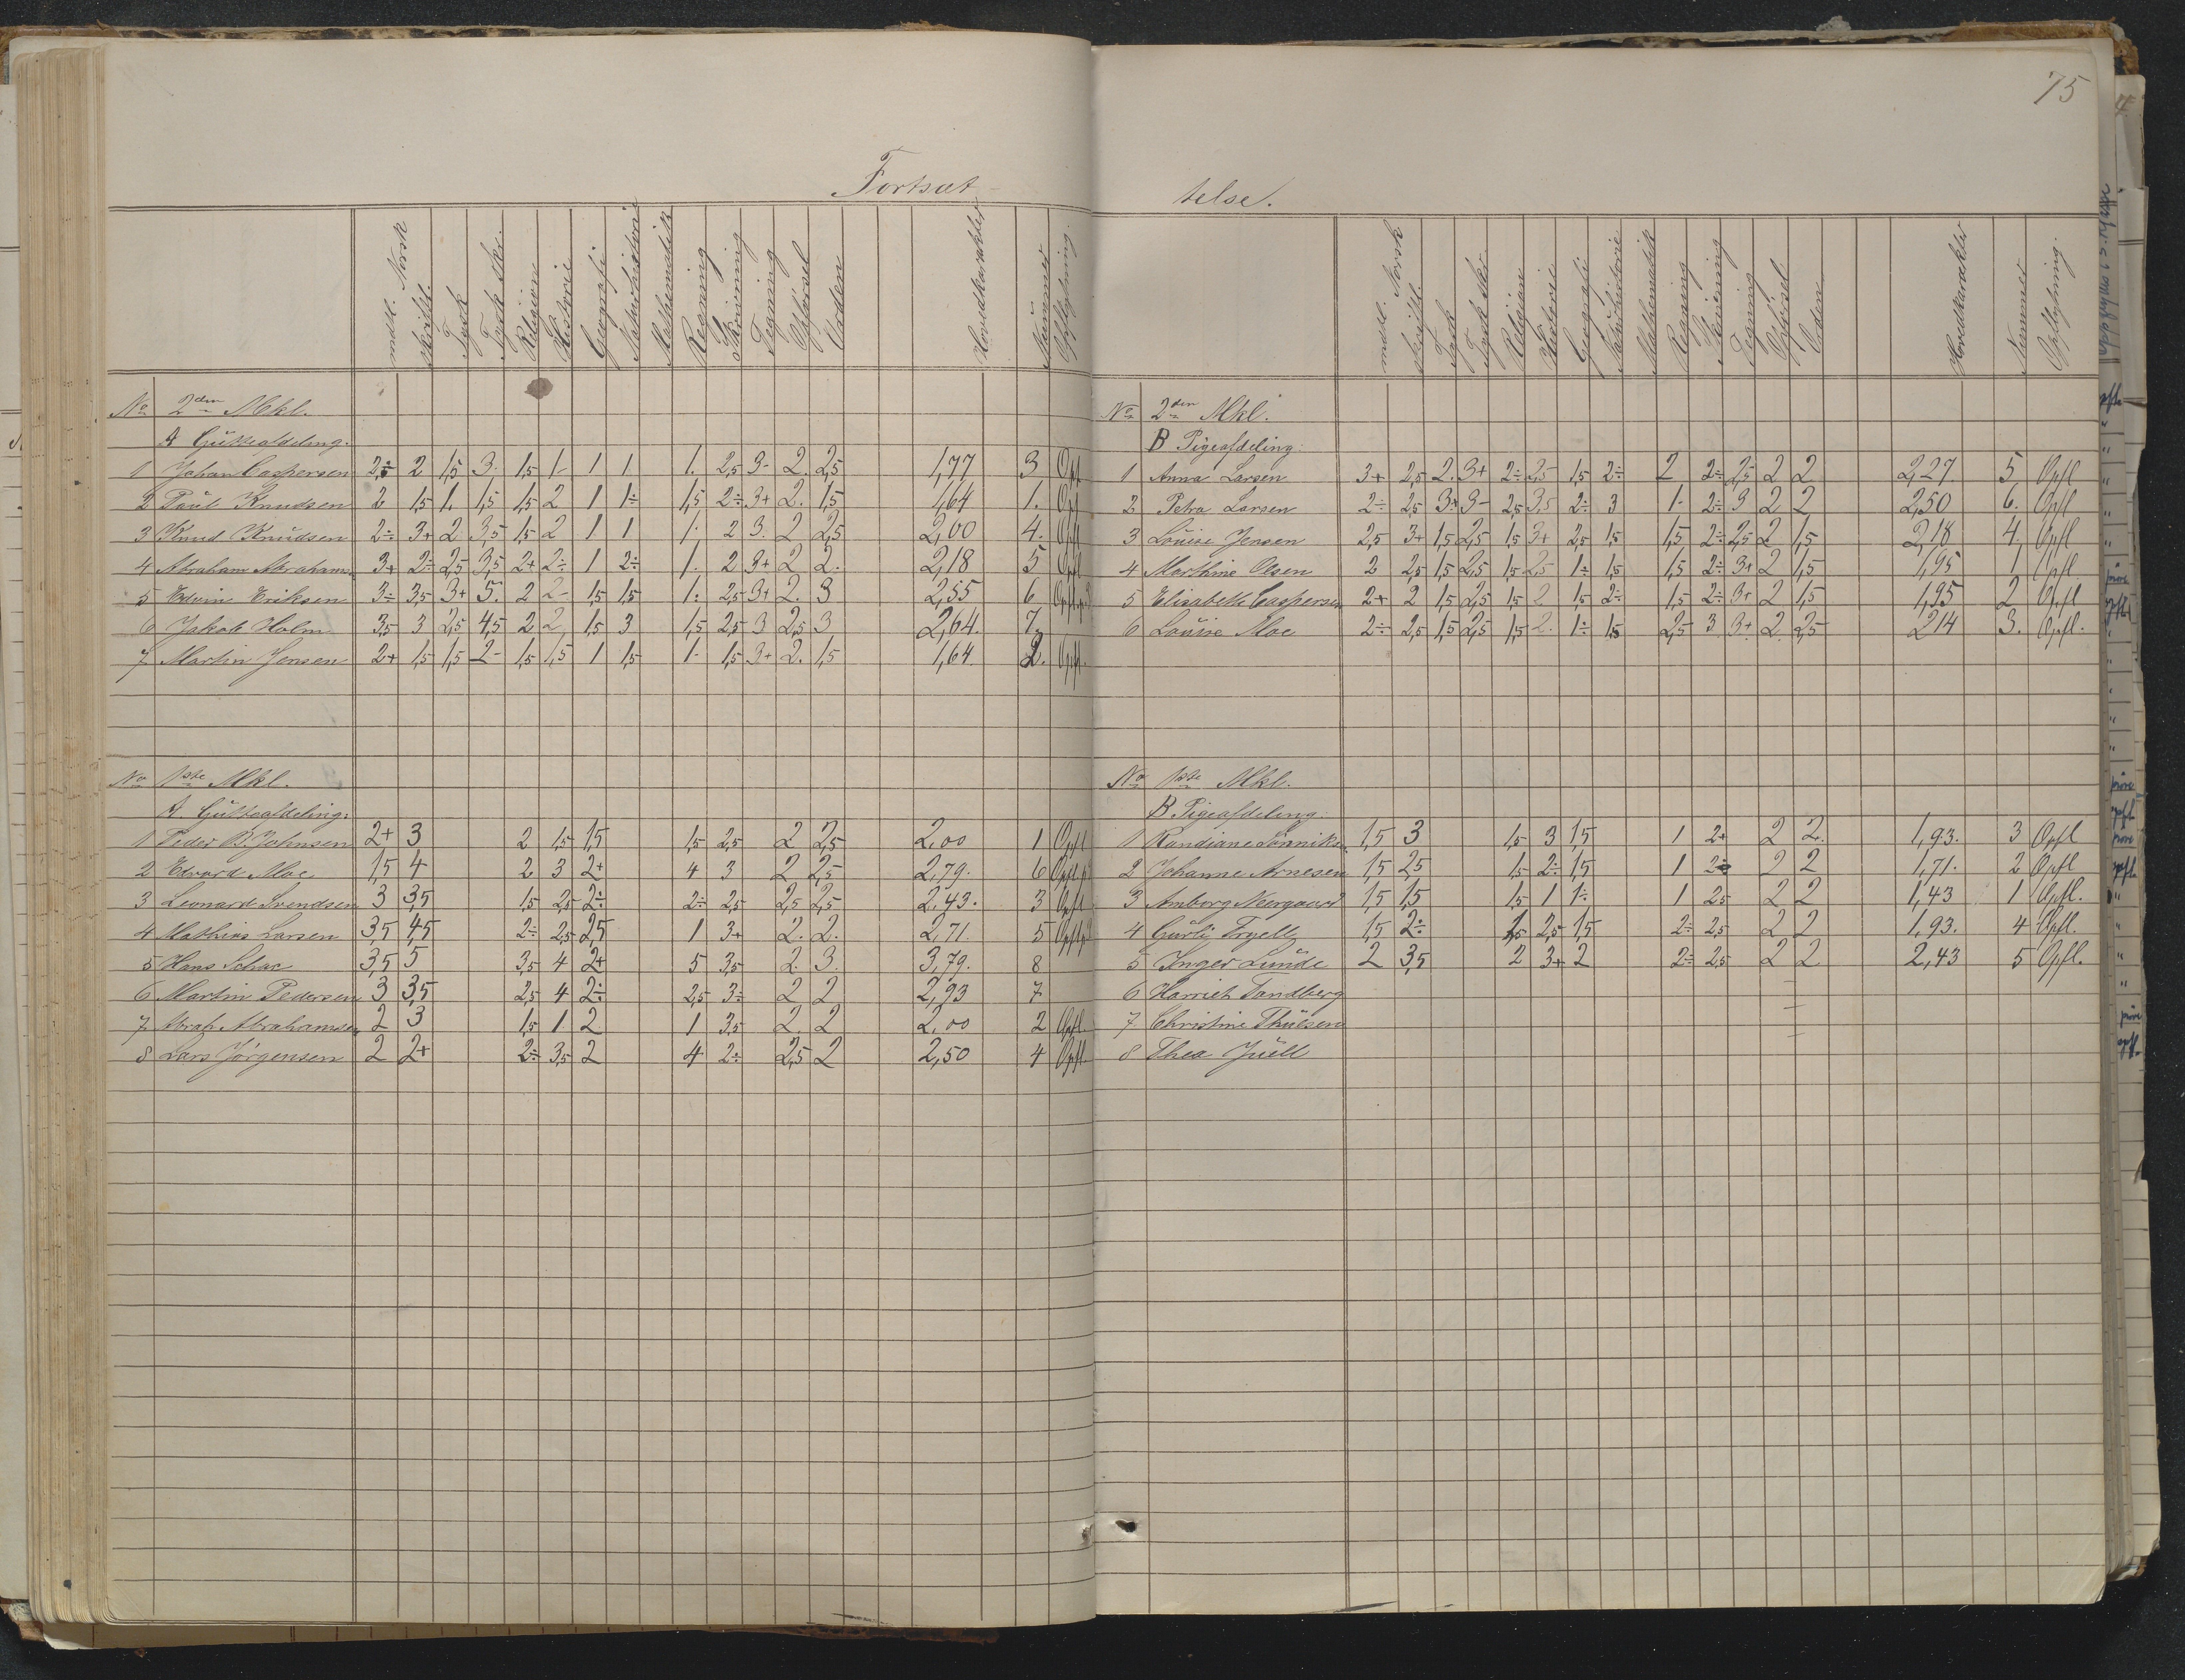 75
Fortsæt
telse.
mdtl. Norsk skriftl. Tysk Tysk Skr. Religion Historie Geografi Naturhistorie Mathematik Regning Skrivning Tegning Opførsel Orden Hovedkarakter Nummer Opflytning.
No 2den Mkl.
A Gutteafdeling.
1 Johan Caspersen 2÷ 2 1,5 3- 1,5 1- 1 1 1. 2,5 3- 2. 2,5 1,77 3 Opfl
2 Paul Knudsen 2 1,5 1. 1,5 1,5 2 1 1÷ 1,5 2÷ 3+ 2. 1,5 1,64 1. Opfl
3 Knud Knudsen 2÷ 3+ 2 3,5 1,5 2 1 1 1. 2 3. 2 2,5 2,00 4. Opfl
4 Abraham Abraham. 3+ 2÷ 2,5 3,5 2+ 2÷ 1 2÷ 1. 2 3+ 2 2. 2,18 5 Opfl
5 Edvin Eriksen 3÷ 3,5 3+ 5. 2 2- 1,5 1,5 1. 2,5 3+ 2. 3 2,55 6
6 Jakob Holm 3,5 3 2,5 4,5 2 2 1,5 3 1,5 2,5 3 2,5 3 2,64. 7.
7 Martin Jensen 2+ 1,5 1,5 2- 1,5 1,5 1 1,5 1- 1,5 3+ 2. 1,5 1,64. 2. Opfl.
No 1ste Mkl.
A. Gutteafdeling:
1 Peder B. Johnsen 2+ 3 2 1,5 1,5 1,5 2,5 2 2,5 2,00 1 Opfl
2 Edvard Moe 1,5 4 2 3 2+ 4 3 2 2,5 2,79. 6
3 Leonard Svendsen 3 3,5 1,5 2,5 2÷ 2÷ 2,5 2,5 2,5 2,43. 3 Opfl
4 Mathias Larsen 3,5 4,5 2÷ 2,5 2,5 1 3+ 2. 2. 2,71 5
5 Hans Schae 3,5 5 3,5 4 2+ 5 3,5 2. 3. 3,79. 8
6 Martin Pedersen 3 3,5 2,5 4 2÷ 2,5 3÷ 2 2 2,93 7
7 Abrah. Abrahamsen 2 3 1,5 1 2 1 3,5 2 2 2,00 2 Opfl.
8 Lars Jörgensen 2 2+ 2÷ 3,5 2 4 2÷ 2,5 2 2,50 4 Opfl
mdtl. Norsk skriftl. Tysk Tysk Skr. Religion Historie Geografi Naturhistorie Mathematik Regning Skrivning Tegning Opførsel Orden Hovedkarakter Nummer Opflytning.
No 2den Mkl.
B Pigeafdeling:
1 Anna Larsen 3+ 2,5 2. 3+ 2÷ 2,5 1,5 2÷ 2 2÷ 2,5 2 2 2,27. 5 Opfl
2 Petra Larsen 2÷ 2,5 3+ 3- 2,5 3,5 2÷ 3 1- 2÷ 3 2 2 2,50 6. Opfl
3 Louise Jensen 2,5 3+ 1,5 2,5 1,5 3+ 2,5 1,5 1,5 2÷ 2,5 2 1,5 2,18 4. Opfl
4 Marthine Olsen 2 2,5 1,5 2,5 1,5 2,5 1÷ 1,5 1,5 2÷ 3+ 2 1,5 1,95 1 Opfl
5 Elisabeth Caspersen 2+ 2 1,5 2,5 1,5 2 1,5 2÷ 1,5 2÷ 3+ 2 1,5 1,95 2 Opfl
6 Louise Moe 2÷ 2,5 1,5 2,5 1,5 2. 1÷ 1,5 2,5 3 3+ 2 2,5 2,14 3. Opfl.
No 1ste Mkl.
B Pigeafdeling:
1 Randiane Lönniks. 1,5 3 1,5 3 1,5 1 2+ 2 2. 1,93. 3 Opfl
2 Johanne Arnesen 1,5 2,5 1,5 2÷ 1,5 1 2÷ 2 2 1,71. 2 Opfl
3 Amborg Neergaard 1,5 1,5 1,5 1 1÷ 1 2,5 2 2 1,43 1 Opfl.
4 Gurli Tryelly 1,5 2÷ 1,5 2,5 1,5 2÷ 2,5 2 2 1,93. 4 Opfl.
5 Inger Lunde 2 3,5 2 3+ 2 2÷ 2,5 2 2 2,43 5 Opfl.
6 Harriet Tandberg
7 Christine Thuesen
8 Thea Juell